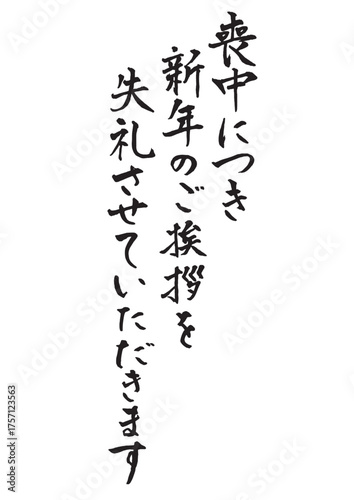 喪中につき
新年のご挨拶を
失礼させていただきます
Adobe Stock | #1757123563